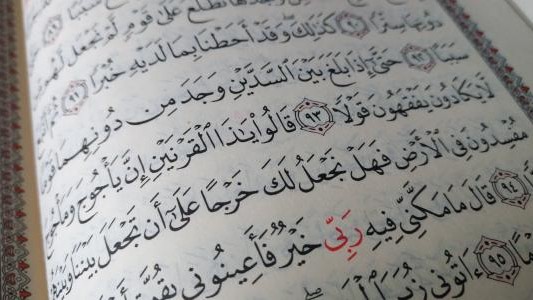 تَطْلُعُ عَلَىٰ قَوْمٍ لَّمْ نَجْعَل لَّهُم
دُونِهَا سِتْرًا ٩٠ كَذَٰلِكَ وَقَدْ أَحَطْنَا بِمَا لَدَيْهِ خُبْرًا ٩١
سَبَبًا ٩٢ حَتَّىٰٓ إِذَا بَلَغَ بَيْنَ ٱلسَّدَّيْنِ وَجَدَ مِن دُونِهِمَا
لَّا يَكَادُونَ يَفْقَهُونَ قَوْلًا ٩٣ قَالُوا۟ يَٰذَا ٱلْقَرْنَيْنِ إِنَّ يَأْجُوجَ وَمَأْجُوجَ
مُفْسِدُونَ فِى ٱلْأَرْضِ فَهَلْ نَجْعَلُ لَكَ خَرْجًا عَلَىٰٓ أَن تَجْعَلَ بَيْنَنَا
٩٤ قَالَ مَا مَكَّنِّى فِيهِ رَبِّى خَيْرٌ فَأَعِينُونِى بِقُوَّةٍ
٩٥ ءَاتُونِى زُبَرَ